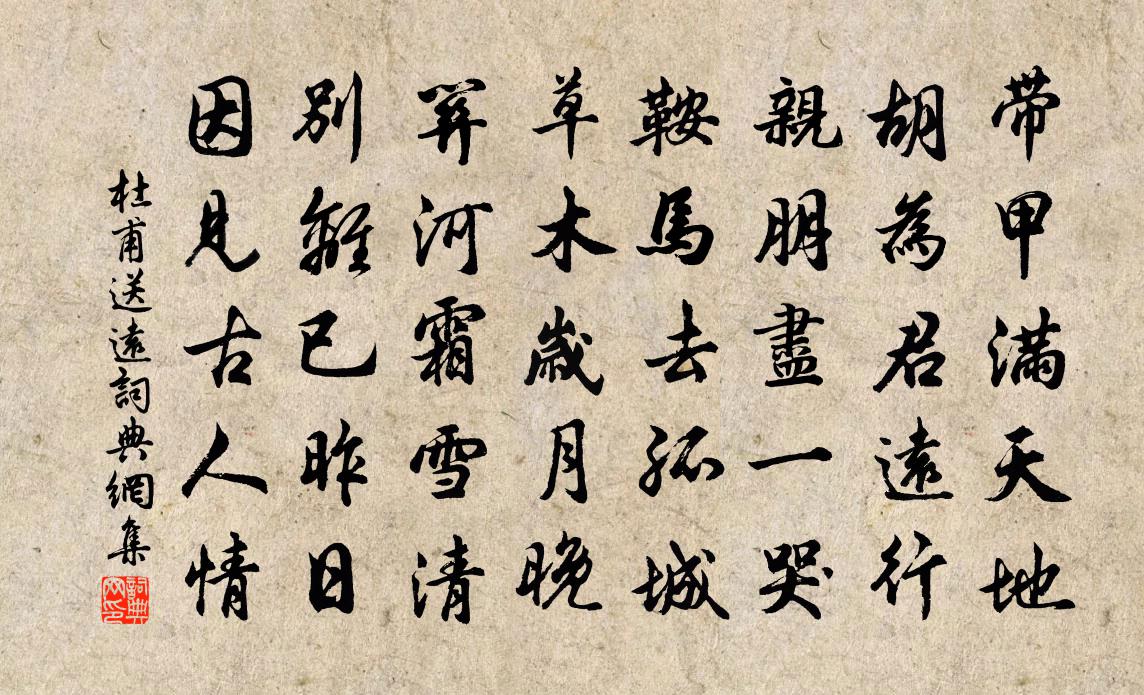 带甲满天地
胡為君遠行
親朋盡一哭
鞍馬去孤城
草木歲月晚
關河霜雪清
別離已昨日
因見古人情
杜甫送遠詞典網集
詞典网印